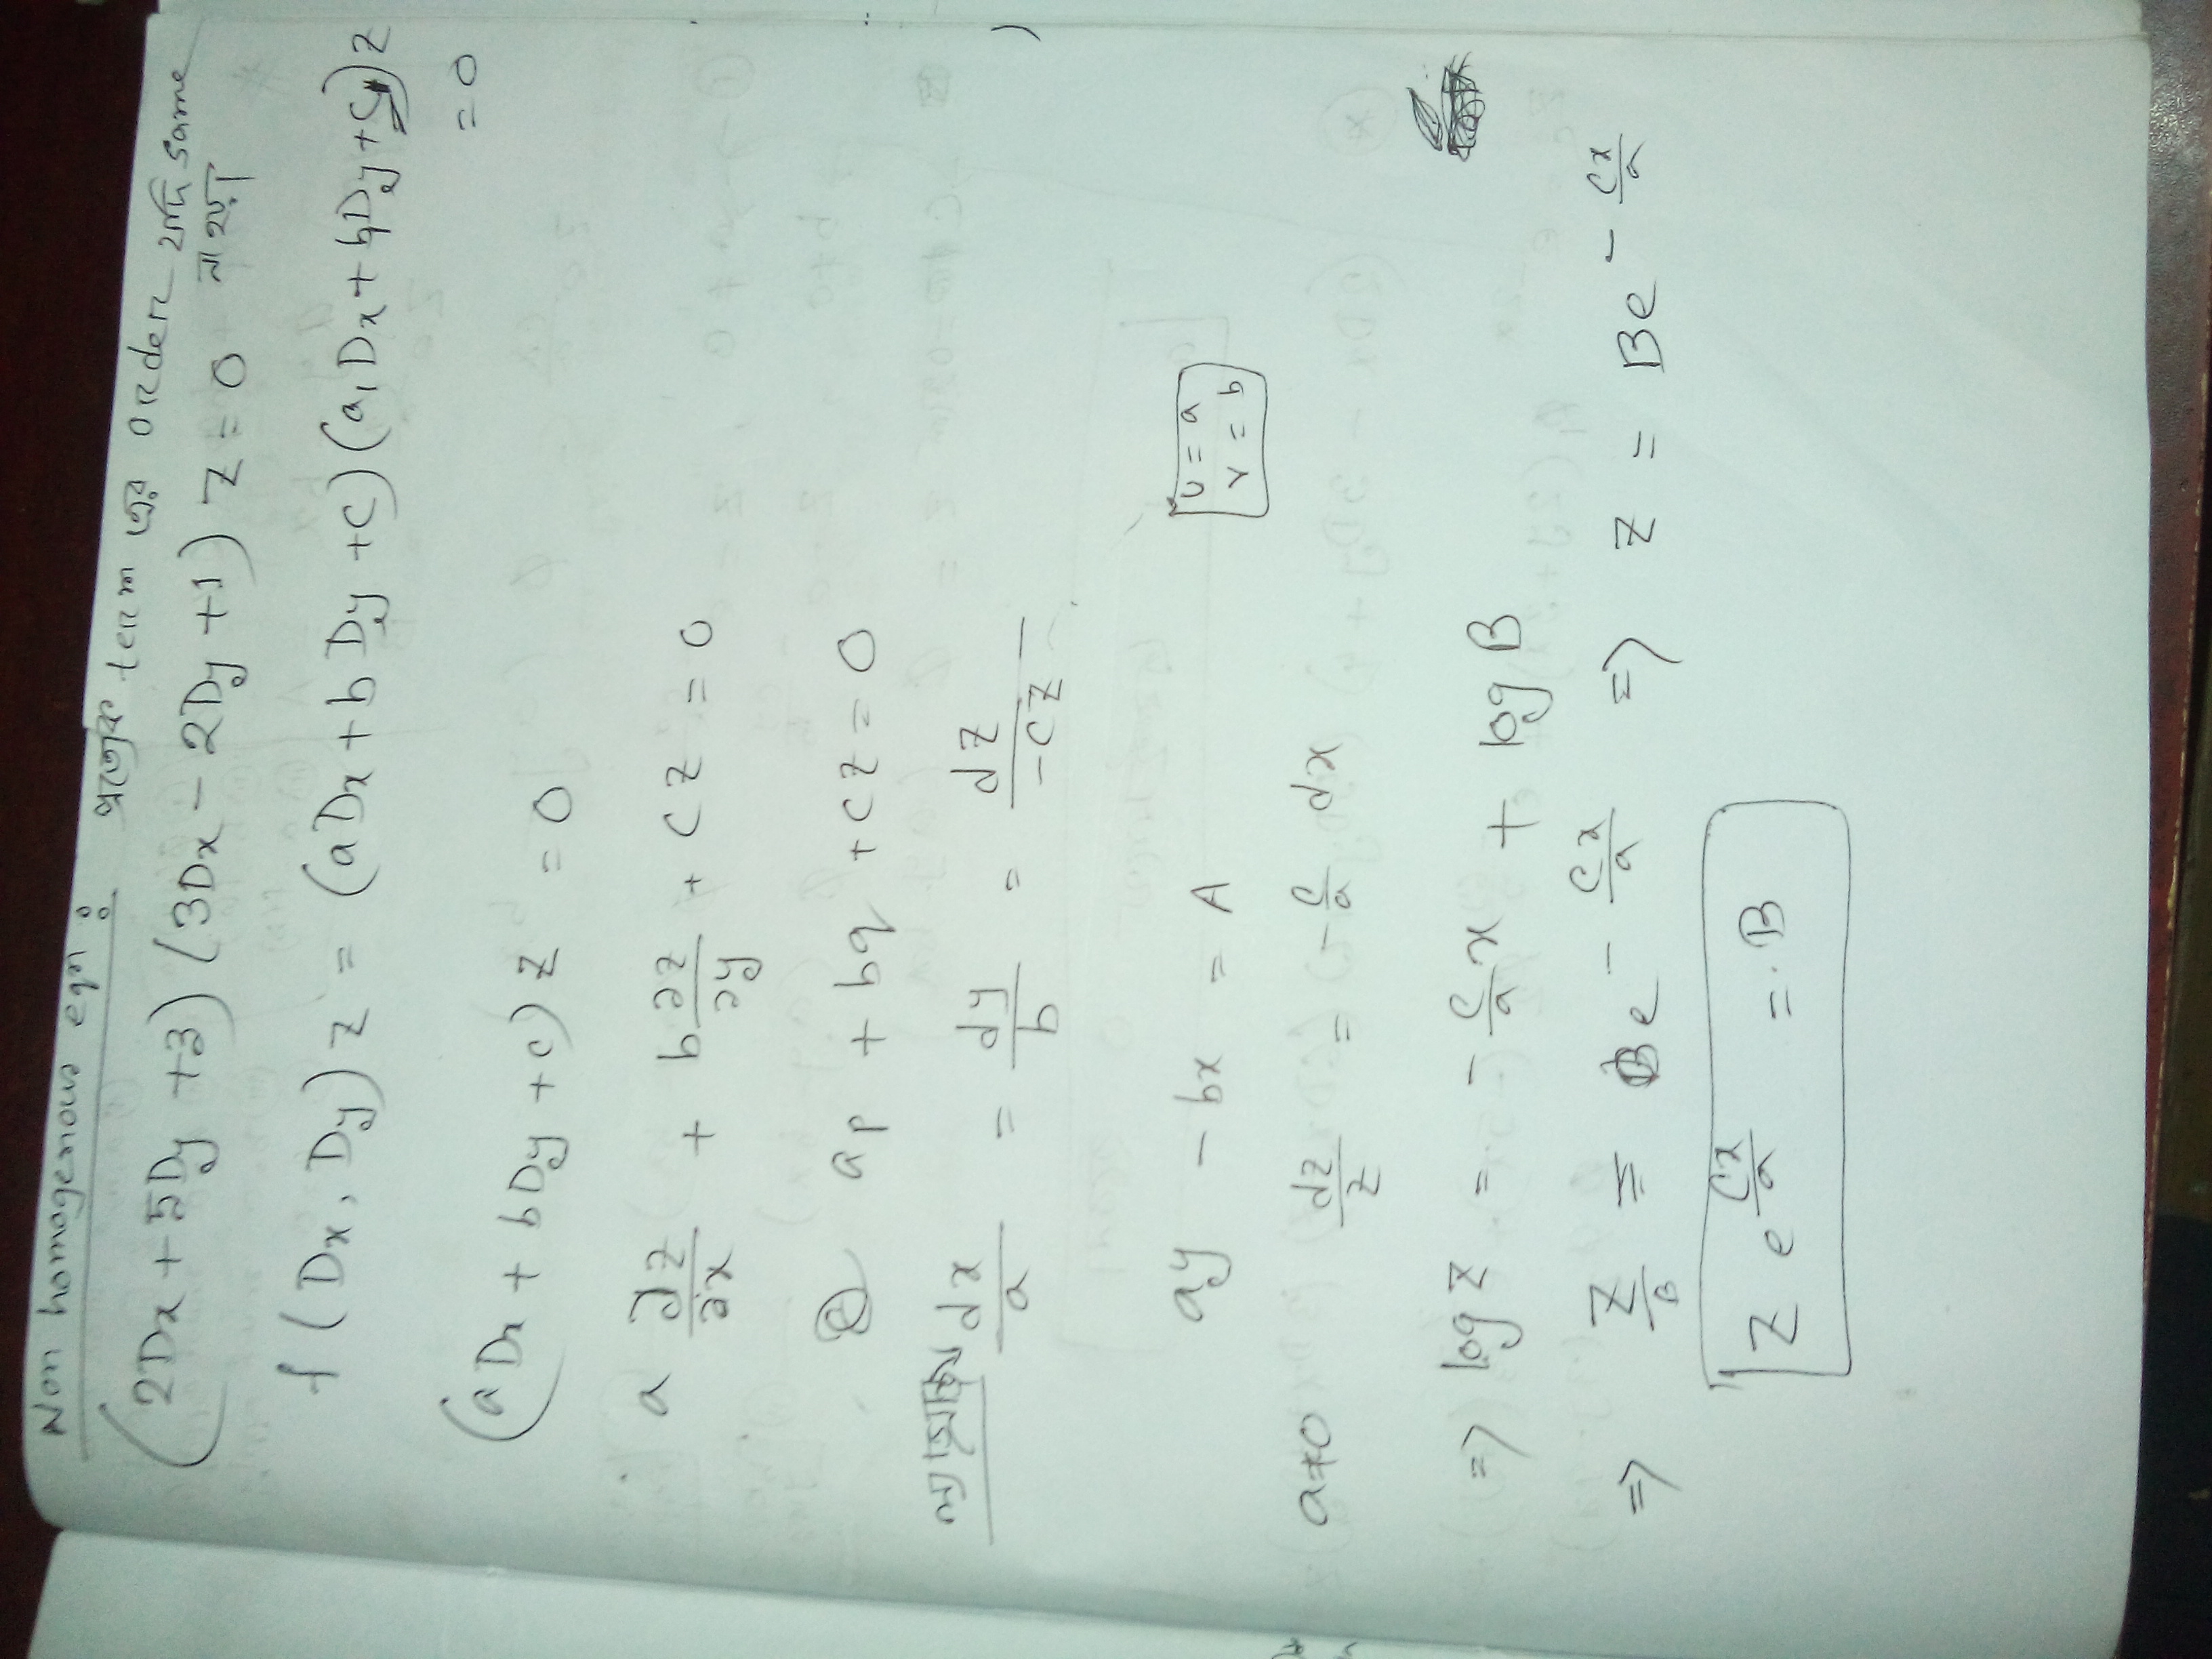 Non homogenous eqn : প্রত্যেক term এর order যদি same
না হয়
(2Dx + 5Dy + 3) (3Dx - 2Dy + 1) z = 0
f (Dx, Dy) z = (aDx + bDy + c) (a₁Dx + b₁Dy + c₁) z
= 0
(aDx + bDy + c) z = 0
a ∂z/∂x + b ∂z/∂y + cz = 0
ap + bq + cz = 0
dx/a = dy/b = dz/-cz
ay - bx = A
u = a
v = b
a≠0 dz/z = (- c/a) dx
(=>) log z = - c/a x + log B
=> z/B = e^(- cx/a) => z = Be^(- cx/a)
z e^(cx/a) = B